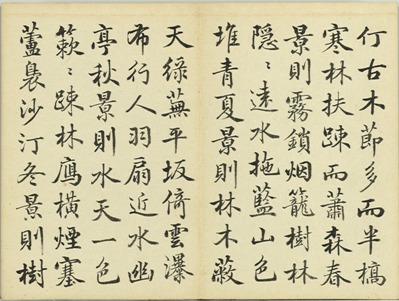 仃古木節多而半槁
寒林扶踈而蕭森春
景則霧鎖烟籠樹林
隱〻遠水拖藍山色
堆青夏景則林木蔽
天綠蕪平坂倚雲瀑
布行人羽扇近水幽
亭秋景則水天一色
簌〻踈林鴈橫煙塞
蘆裊沙汀冬景則樹